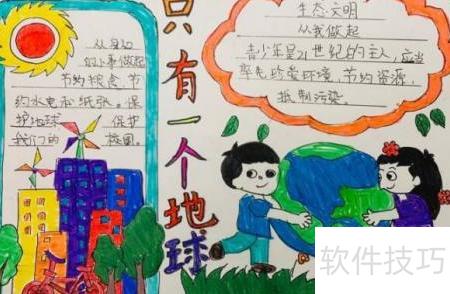 只有一个地球
从身边
的小事做起
节约粮食、节
约水电和纸张。保
护地球 保护
我们的 校园。
生态文明
从我做起
青少年是21世纪的主人,应当
率先珍爱环境、节约资源,
抵制污染。
软件技巧